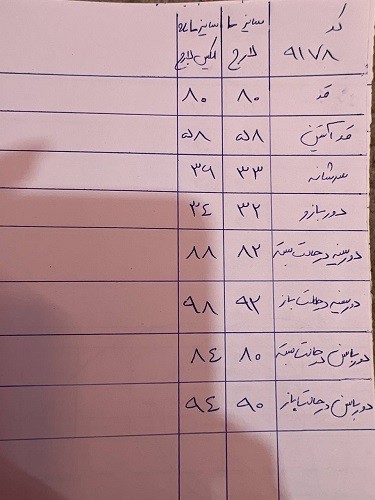 کد ۹۱۷۸ سایز L لارج سایز ایکس لارج
قد ۸۰ ۸۰
قد آستین ۵۸ ۵۸
سرشانه ۳۳ ۳۶
دور بازو ۳۲ ۳۴
دور سینه در حالت بسته ۸۲ ۸۸
دور سینه در حالت باز ۹۲ ۹۸
دور باسن در حالت بسته ۸۰ ۸۴
دور باسن در حالت باز ۹۰ ۹۴